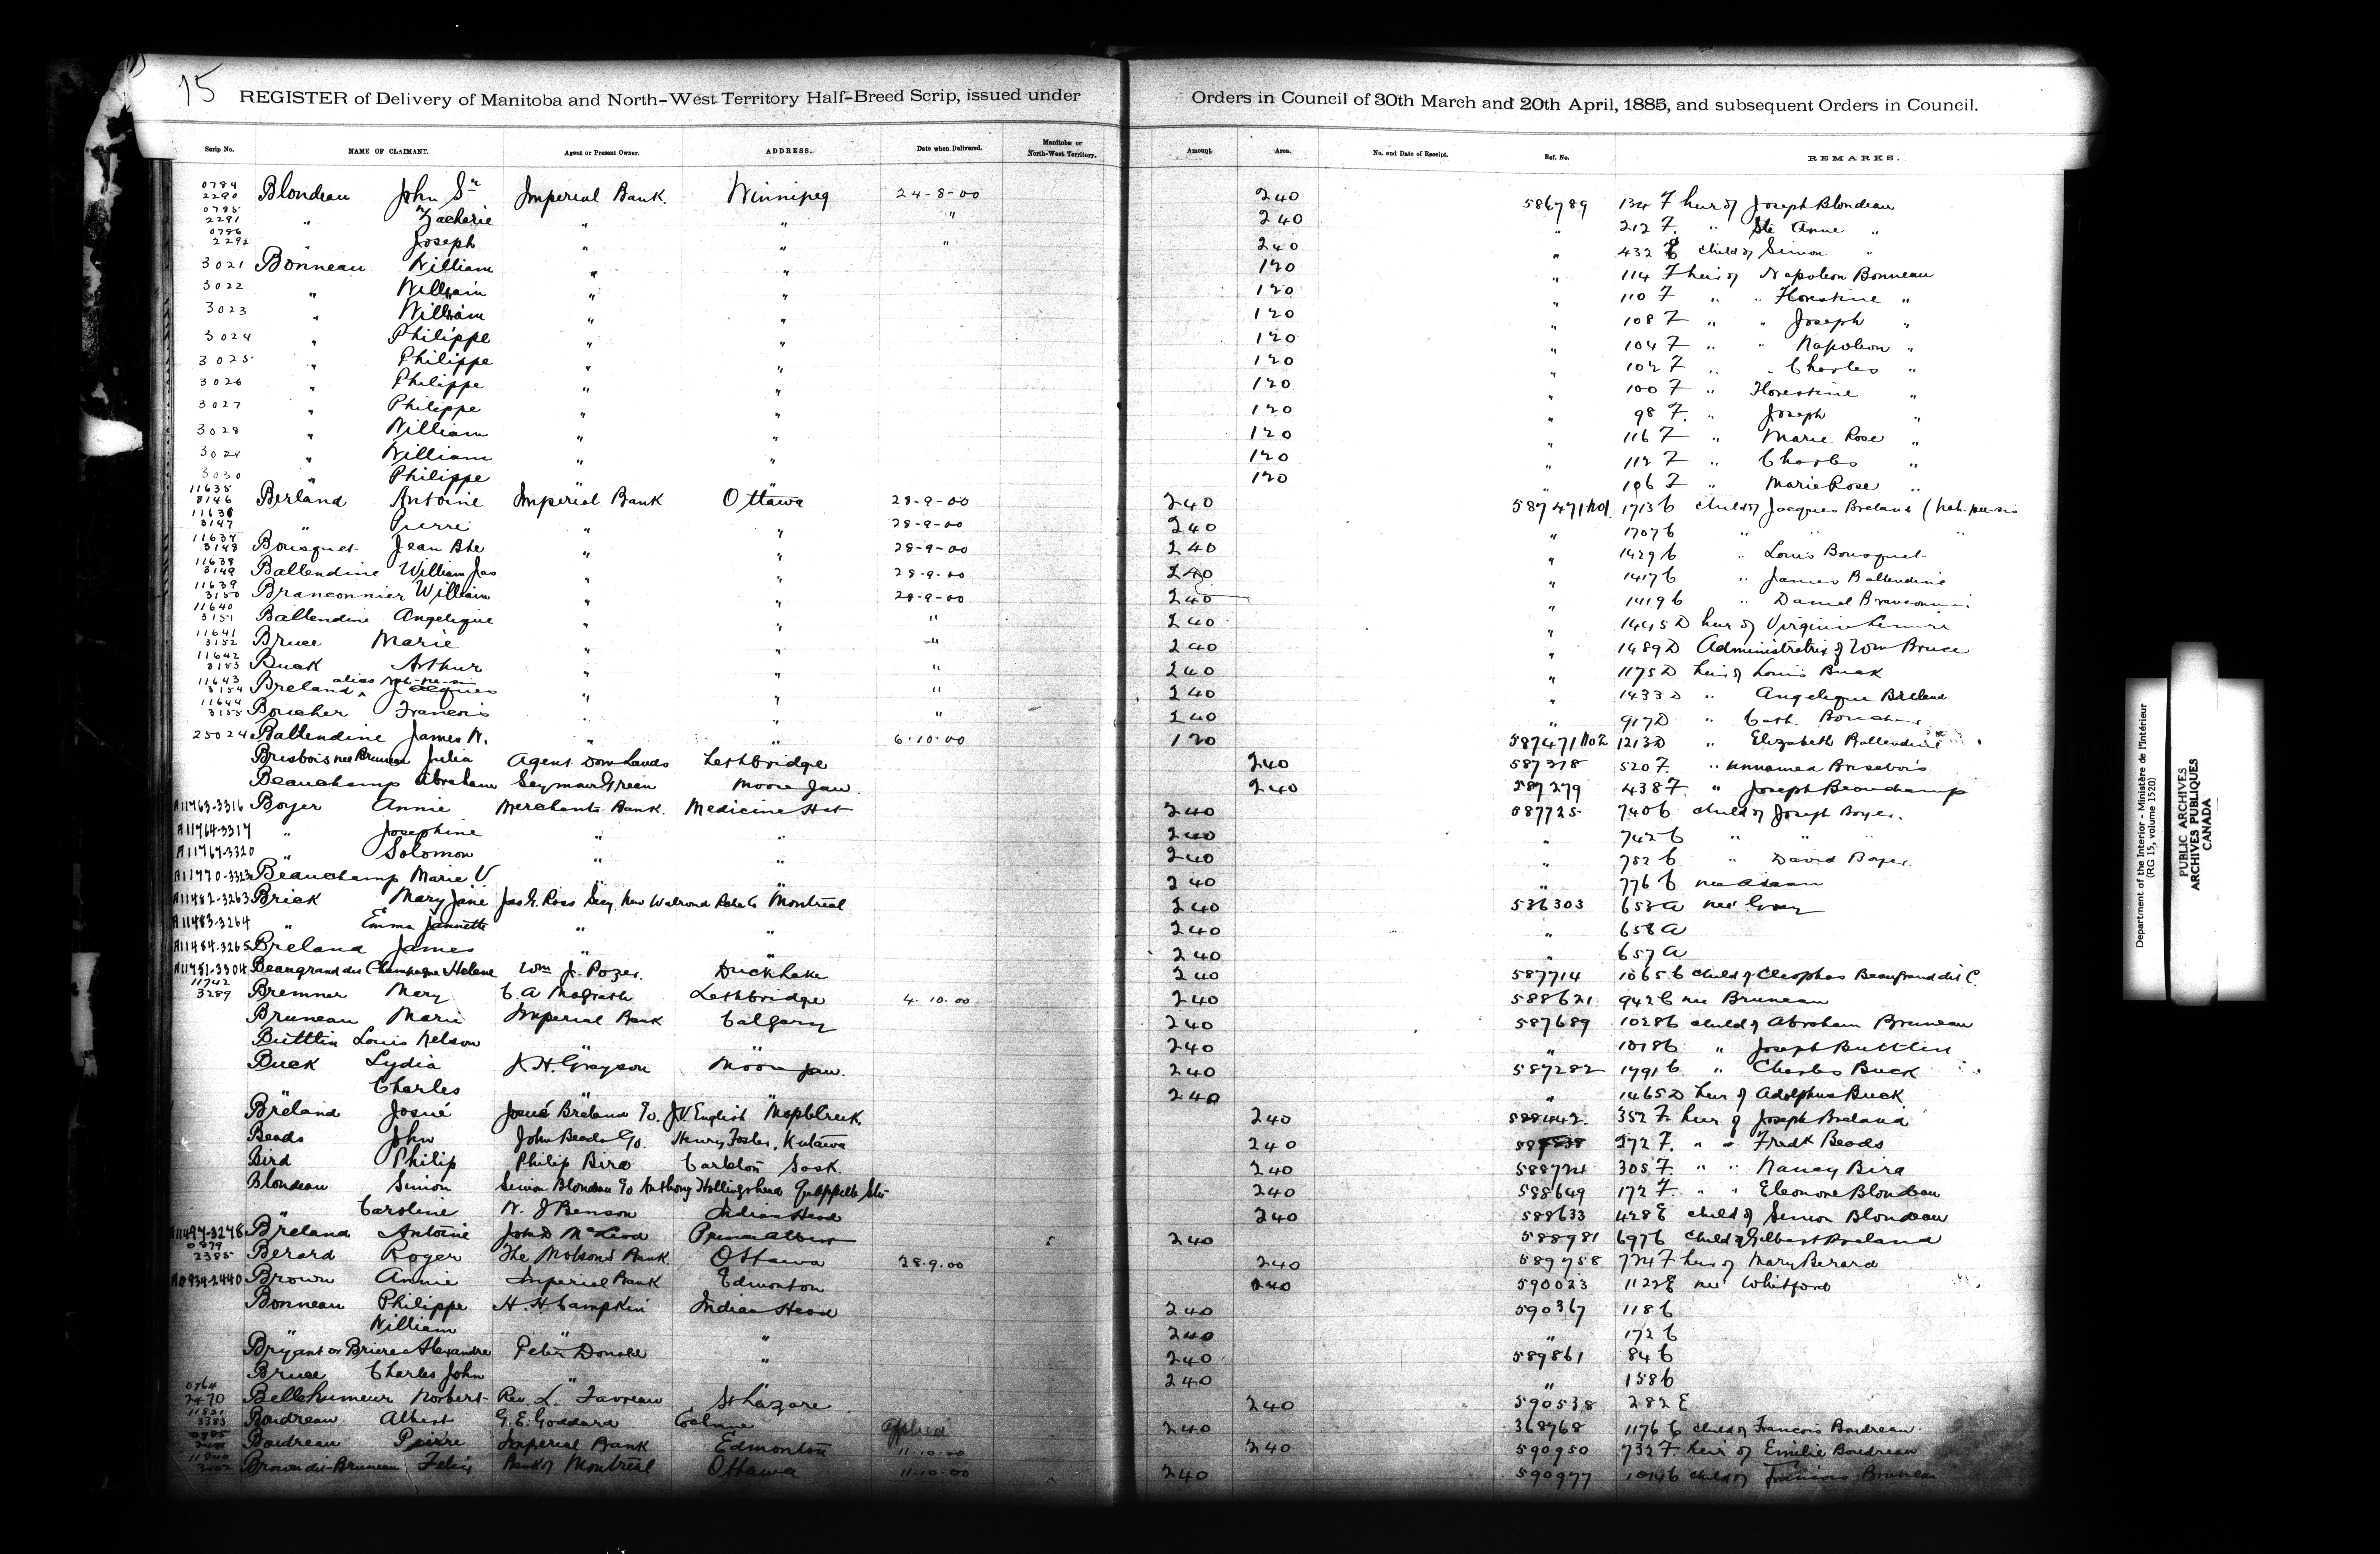 75
REGISTER of Delivery of Manitoba and North-West Territory Half-Breed Scrip, issued under Orders in Council of 30th March and 20th April, 1885, and subsequent Orders in Council.
Scrip No. NAME OF CLAIMANT. Agent or Present Owner. ADDRESS. Date when Delivered. Manitoba or North-West Territory. Amount. Area. No. and Date of Receipt. Ref. No. REMARKS.
0784 2290 Blondeau John Sr Imperial Bank. Winnipeg 24-8-00 240 586789 134 F heir of Joseph Blondeau
0785 2291 " Zacherie " " " 240 " 212 F. " Ste Anne "
0786 2292 " Joseph " " " 240 " 432 child of Simon "
3021 Bonneau William " " 120 " 114 F heir of Napoleon Bonneau
3022 " William " " 120 " 110 F " " Florestine "
3023 " William " " 120 " 108 F " " Joseph "
3024 " Philippe " " 120 " 104 F " " Napoleon "
3025 " Philippe " " 120 " 102 F " " Charles "
3026 " Philippe " " 120 " 100 F " Florestine "
3027 " Philippe " " 120 " 98 F. " Joseph "
3028 " William " " 120 " 116 F " Marie Rose "
3029 " William " " 120 " 112 F " Charles "
3030 " Philippe " " 120 " 106 F " Marie Rose "
11635 3146 Berland Antoine Imperial Bank Ottawa 28-9-00 240 587471 No1. 1713 C child of Jacques Breland
11636 3147 " Pierre " " 28-9-00 240 " 1707 C " "
11637 3148 Bousquet Jean Bte " " 28-9-00 240 " 1429 C " Louis Bousquet
11638 3149 Ballendine William Jas " " 28-9-00 240 " 1417 C " James Ballendine
11639 3150 Branconnier William " " 28-9-00 240 " 1419 C " Daniel
11640 3151 Ballendine Angelique " " " 240 " 1445 D heir of Virginie
11641 3152 Bruce Marie " " " 240 " 1489 D Administratrix of Wm Bruce
11642 3153 Buck Arthur " " " 240 " 1175 D heir of Louis Buck
11643 3154 Breland alias Jacques " " " 240 " 1433 D " Angelique Breland
11644 3155 Boucher Francois " " " 240 " 917 D " Cath. Boucher
25024 Ballendine James N. " " 6-10-00 120 587471 No2 1213 D " Elizabeth Ballendine
Brisbois nee Bruneau Julia Agent Dom Lands Lethbridge 240 587378 520 F. " unnamed Brisebois
Beauchamp Abraham Seymour Green Moose Jaw. 240 587279 438 F. " Joseph Beauchamp
A11763-3316 Boyer Annie Merchants Bank. Medicine Hat 240 587725 740 C child of Joseph Boyer.
A11764-3317 " Josephine " " 240 " 742 C " "
A11767-3320 " Solomon " " 240 " 752 C " David Boyer
A11770-3323 Beauchamp Marie V " " 240 " 776 C nee Adam
A11482-3263 Brick Mary Jane Jas G. Ross Secy. New Walrond Montreal 240 536303 653 A nee Gray
A11483-3264 " Emma Jannette " " 240 " 658 A
A11484-3265 Breland James " " 240 " 657 A
A11751-3304 Beaugrand dit Champagne Helene Wm J. Pozer. Duck Lake 240 587714 1065 C child of Cleophas Beaugrand dit C.
11742 3289 Bremner Mary C. A Magrath Lethbridge 4-10-00 240 588621 942 C nee Bruneau
Bruneau Marie Imperial Bank Calgary 240 587689 1028 C child of Abraham Bruneau
Buttlin Louis Nelson " " 240 " 1018 C " Joseph Buttlin
Buck Lydia J. H. Grayson Moose Jaw. 240 587282 1791 C " Charles Buck
" Charles " " 240 " 1465 D heir of Adolphus Buck
Breland Josué Josué Breland c/o J. V English Maple Creek. 240 588442. 352 F. heir of Joseph Breland
Beads John John Beads c/o. Henry Foster, Kutawa 240 272 F. " " Fredk Beads
Bird Philip Philip Bird Carlton Sask. 240 588724 305 F. " " Nancy Bird
Blondeau Simon Simon Blondeau c/o Anthony Hollingshead Qu'appelle Stn 240 588649 172 F. " " Eleonore Blondeau
" Caroline N. J Benson Indian Head 240 588633 428 E child of Simon Blondeau
A11497-3278 Breland Antoine John D McLeod Prince Albert 240 588981 697 C child of Gilbert Breland
0879 2385 Berard Roger The Molsons Bank Ottawa 28-9-00 240 589758 724 F heir of Mary Berard
A0934-2440 Brown Annie Imperial Bank Edmonton 240 590023 1122 E nee Whitford
Bonneau Philippe H. H. Campkin Indian Head 240 590367 118 C
" William " " 240 " 172 C
Bryant or Briere Alexandre Peter Donald " 240 589861 84 C
Bruce Charles John " " 240 " 158 C
0764 2470 Bellehumeur Norbert Rev. L. Favreau St Lazare 240 590538 282 E
11821 3383 Boudreau Albert G. E. Goddard Cochrane Applied 240 368768 1176 C child of Francois Boudreau
Boudreau Pierre Imperial Bank Edmonton 11-10-00 240 590950 732 F heir of Emilie Boudreau
Brown dit Bruneau Felix Bank of Montreal Ottawa 11-10-00 240 590977 child of Francois Bruneau
Department of the Interior - Ministère de l'Intérieur
(RG 15, volume 1520)
PUBLIC ARCHIVES
ARCHIVES PUBLIQUES
CANADA